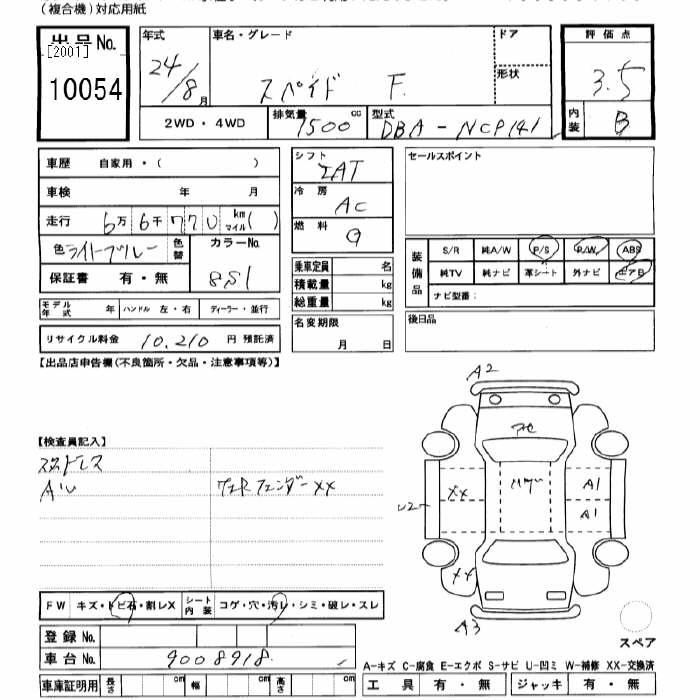 (複合機)対応用紙
出品No. [2001] 10054
年式 24/8月
車名・グレード スペイド F
ドア
形状
評価点 3.5
内装 B
2WD・4WD
排気量 1500 cc
型式 DBA-NCP141
車歴 自家用・( )
車検 年 月
走行 6万6千770 km マイル( )
色 ライトブルー 色替 カラーNo. 8S1
保証書 有・無
モデル年式 年 ハンドル 左・右 ディーラー・並行
リサイクル料金 10,210 円 預託済
シフト IAT
冷房 AC
燃料 G
乗車定員 名
積載量 kg
総重量 kg
名変期限 月 日
セールスポイント
装備品 S/R 純A/W P/S P/W ABS
純TV 純ナビ 革シート 外ナビ エアB
ナビ型番:
後日品
【出品店申告欄(不良箇所・欠品・注意事項等)】
【検査員記入】
スタッドレス
A'U
フェンダーXX
A2
XX
A1
A1
U2
XX
A3
スペア
FW キズ・トビ石・割レX シート内装 コゲ・穴・汚レ・シミ・破レ・スレ
登録No.
車台No. 9008918
車庫証明用 長さ cm 幅 cm 高さ cm
A-キズ C-腐食 E-エクボ S-サビ U-凹ミ W-補修 XX-交換済
工具 有・無 ジャッキ 有・無